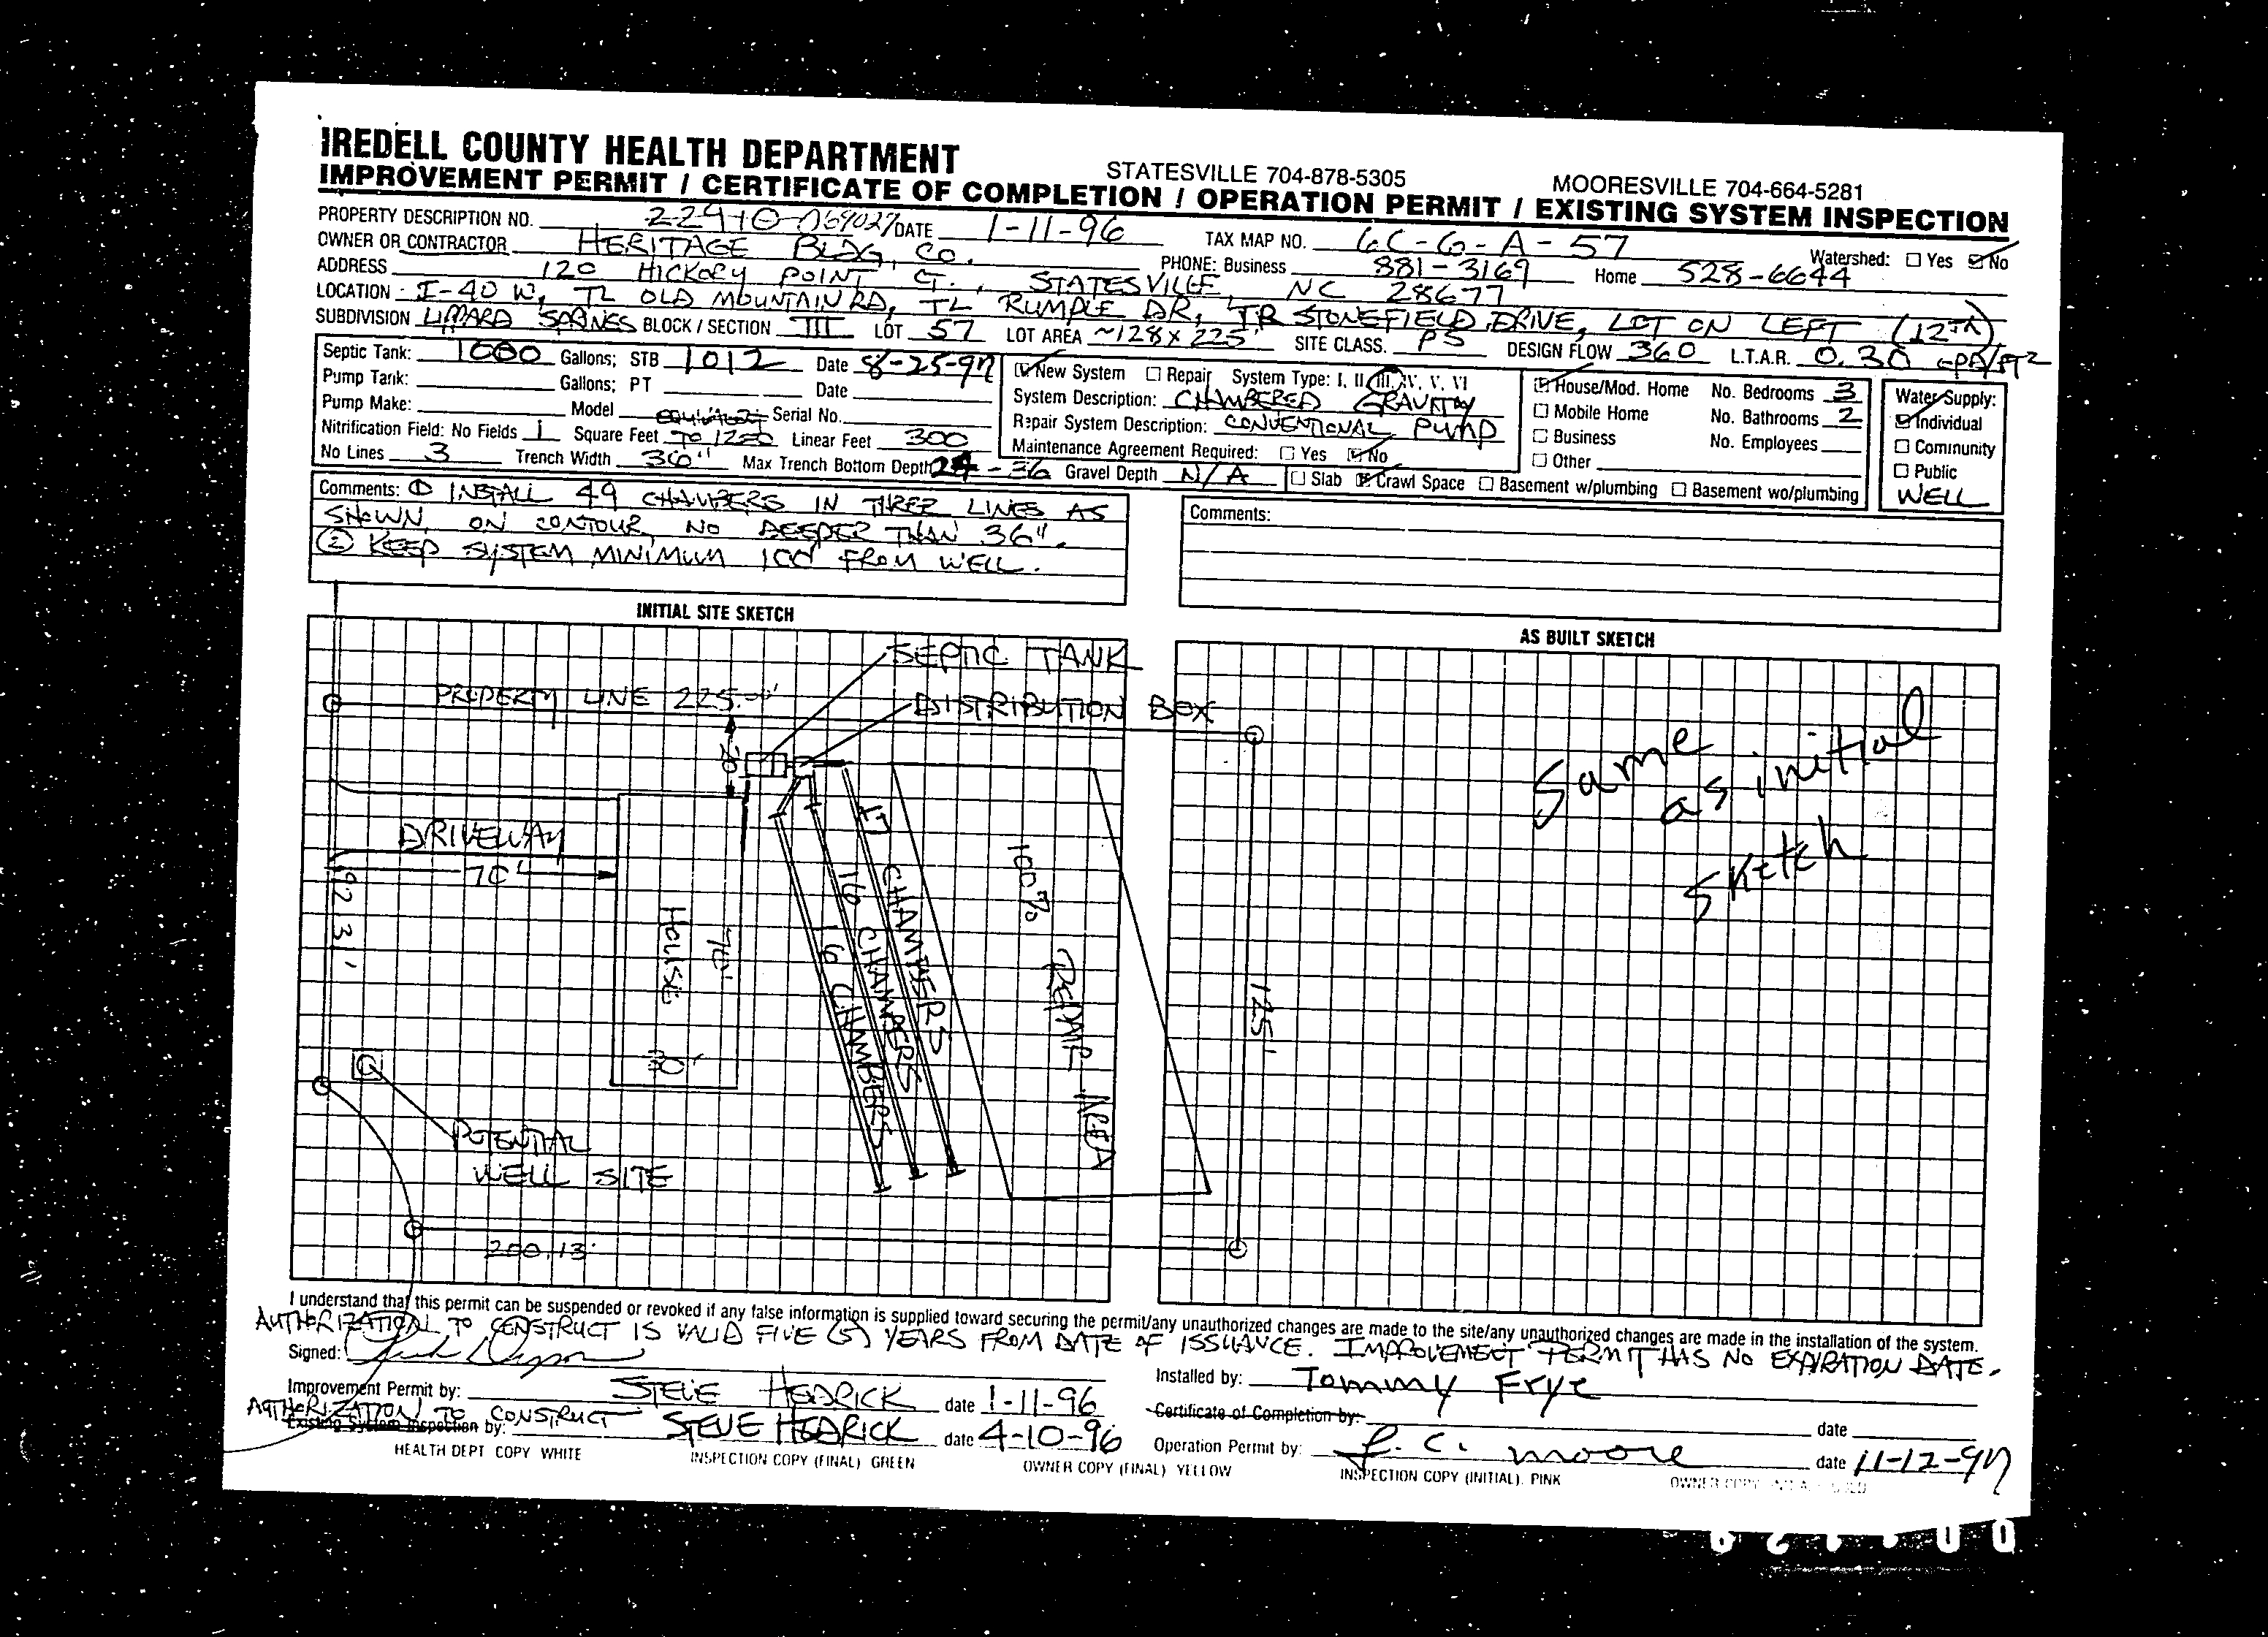 IREDELL COUNTY HEALTH DEPARTMENT STATESVILLE 704-878-5305 MOORESVILLE 704-664-5281
IMPROVEMENT PERMIT / CERTIFICATE OF COMPLETION / OPERATION PERMIT / EXISTING SYSTEM INSPECTION
PROPERTY DESCRIPTION NO. DATE 1-11-96 TAX MAP NO. 6C-G-A-57 Watershed: Yes No
OWNER OR CONTRACTOR HERITAGE BLDG, CO. PHONE: Business 881-3169 Home 528-6644
ADDRESS 120 HICKORY POINT CT., STATESVILLE, NC 28677
LOCATION I-40 W, TL OLD MOUNTAIN RD, TL RUMPLE DR, TR STONEFIELD DRIVE, LOT ON LEFT (12TH)
SUBDIVISION SPRINGS BLOCK / SECTION III LOT 57 LOT AREA ~128 x 225' SITE CLASS. PS DESIGN FLOW 360 L.T.A.R. 0.30 GPD/FT2
Septic Tank: 1000 Gallons; STB 1012 Date 8-25-97
Pump Tank: Gallons; PT Date
Pump Make: Model Serial No.
Nitrification Field: No Fields 1 Square Feet EQUIVALENT TO 1200 Linear Feet 300
No Lines 3 Trench Width 36" Max Trench Bottom Depth 24-36 Gravel Depth N/A
New System Repair System Type: I, II, III, IV, V, VI
System Description: CHAMBERED GRAVITY
Repair System Description: CONVENTIONAL PUMP
Maintenance Agreement Required: Yes No
Slab Crawl Space Basement w/plumbing Basement wo/plumbing
House/Mod. Home No. Bedrooms 3
Mobile Home No. Bathrooms 2
Business No. Employees
Other
Water Supply:
Individual
Community
Public
WELL
Comments: ① INSTALL 49 CHAMBERS IN THREE LINES AS
SHOWN, ON CONTOUR, NO DEEPER THAN 36".
② KEEP SYSTEM MINIMUM 100' FROM WELL.
Comments:
INITIAL SITE SKETCH
SEPTIC TANK
PROPERTY LINE 225.00'
DISTRIBUTION BOX
20'
DRIVEWAY
70'
92.31'
HOUSE
74'
30'
17 CHAMBERS
16 CHAMBERS
16 CHAMBERS
100% REPAIR AREA
125'
POTENTIAL
WELL SITE
200.13'
AS BUILT SKETCH
Same
as initial
sketch
I understand that this permit can be suspended or revoked if any false information is supplied toward securing the permit/any unauthorized changes are made to the site/any unauthorized changes are made in the installation of the system.
AUTHORIZATION TO CONSTRUCT IS VALID FIVE (5) YEARS FROM DATE OF ISSUANCE. IMPROVEMENT PERMIT HAS NO EXPIRATION DATE.
Signed:
Improvement Permit by: STEVE HEDRICK date 1-11-96
Installed by: Tommy Frye
AUTHORIZATION TO CONSTRUCT
Existing System Inspection by: STEVE HEDRICK date 4-10-96
Certificate of Completion by: date
Operation Permit by: date 11-12-97
HEALTH DEPT COPY WHITE INSPECTION COPY (FINAL) GREEN OWNER COPY (FINAL) YELLOW INSPECTION COPY (INITIAL) PINK